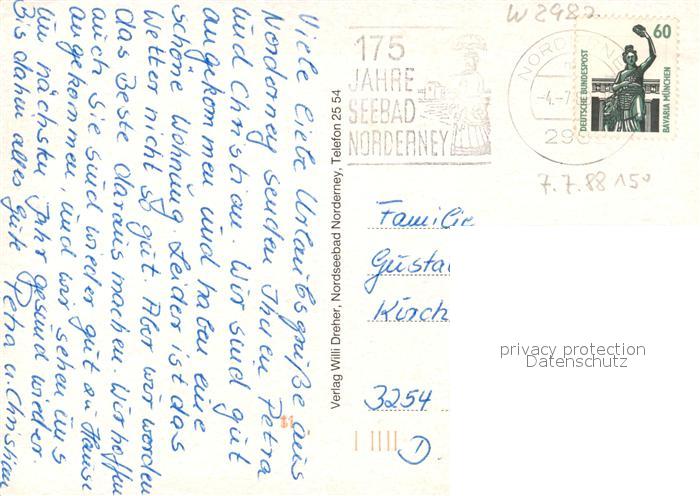 Viele liebe Urlaubsgrüße aus
Norderney senden Ihnen Petra
und Christian. Wir sind gut
angekommen und haben eine
schöne Wohnung. Leider ist das
Wetter nicht so gut. Aber wir werden
das Beste daraus machen. Wir hoffen
auch Sie sind wieder gut zu Hause
angekommen, und wir sehen uns
im nächsten Jahr gesund wieder.
Bis dahin alles Gute Petra u. Christian
Verlag Willi Dreher, Nordseebad Norderney, Telefon 25 54
175
JAHRE
SEEBAD
NORDERNEY
W 2982
-4.-7
298
60
DEUTSCHE BUNDESPOST
BAVARIA MÜNCHEN
7.7.88 150
Familie
Gusta
Kirch
3254
privacy protection
Datenschutz